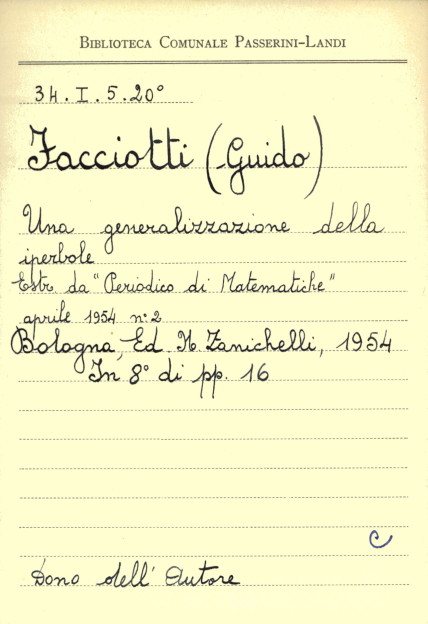 BIBLIOTECA COMUNALE PASSERINI-LANDI
34.I.5.20°
Facciotti (Guido)
Una generalizzazione della
iperbole
Estr. da "Periodico di Matematiche"
aprile 1954 n: 2
Bologna, Ed. N. Zanichelli, 1954
In 8° di pp. 16
C
Dono dell' Autore